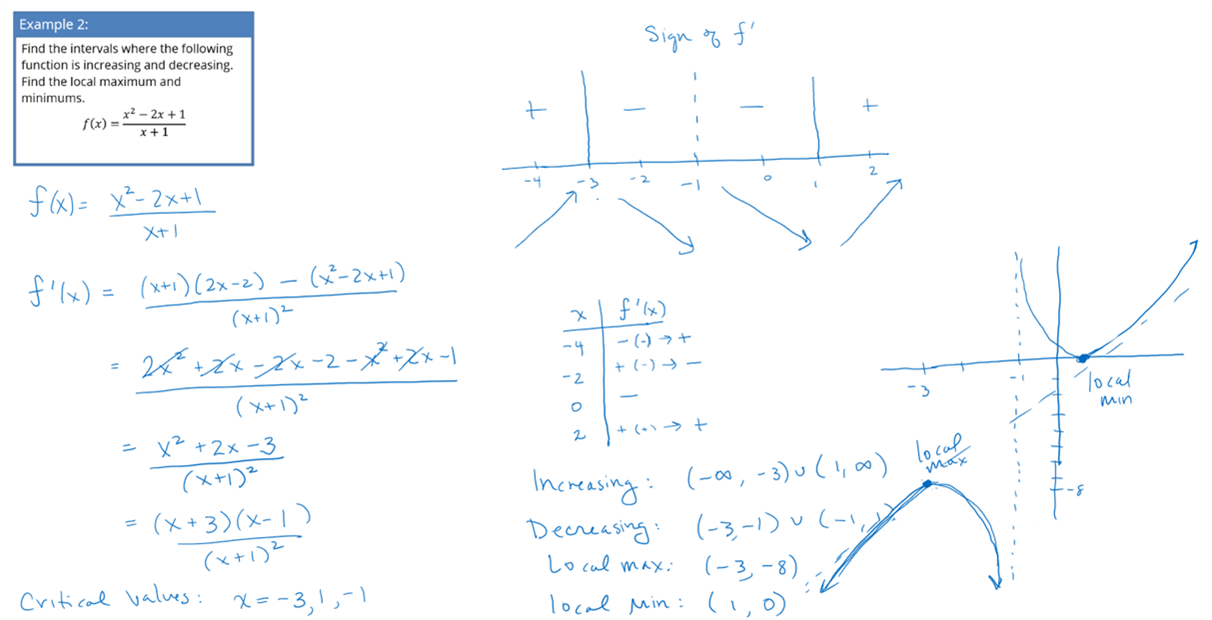 Example 2:
Find the intervals where the following
function is increasing and decreasing.
Find the local maximum and
minimums.
f(x) = (x² − 2x + 1)/(x + 1)
f(x) = (x² - 2x + 1)/(x+1)
f'(x) = ((x+1)(2x-2) - (x²-2x+1))/(x+1)²
= (2x² + 2x - 2x - 2 - x² + 2x - 1)/(x+1)²
= (x² + 2x - 3)/(x+1)²
= ((x+3)(x-1))/(x+1)²
Critical values: x = -3, 1, -1
Sign of f'
+ − − +
-4 -3 -2 -1 0 1 2
x f'(x)
-4 -(-) → +
-2 +(-) → −
0 −
2 +(+) → +
Increasing: (-∞, -3) ∪ (1, ∞)
Decreasing: (-3,-1) ∪ (-1, 1)
Local max: (-3, -8)
local min: (1, 0)
-3 -1
local
min
local
max
-8